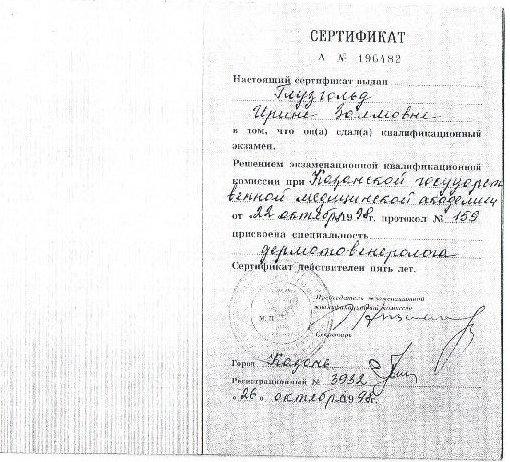 СЕРТИФИКАТ
А № 196482
Настоящий сертификат выдан
Глузгольд
Ирине
в том, что он(а) сдал(а) квалификационный
экзамен.
Решением экзаменационной квалификационной
комиссии при Казанской государст
венной медицинской академии
от "22 октября 1998г. протокол № 159
присвоена специальность
дерматовенеролога
Сертификат действителен пять лет.
Председатель экзаменационной
квалификационной комиссии
М.П.
Секретарь
Город Казань
Регистрационный № 3932
"26" октября 1998г.